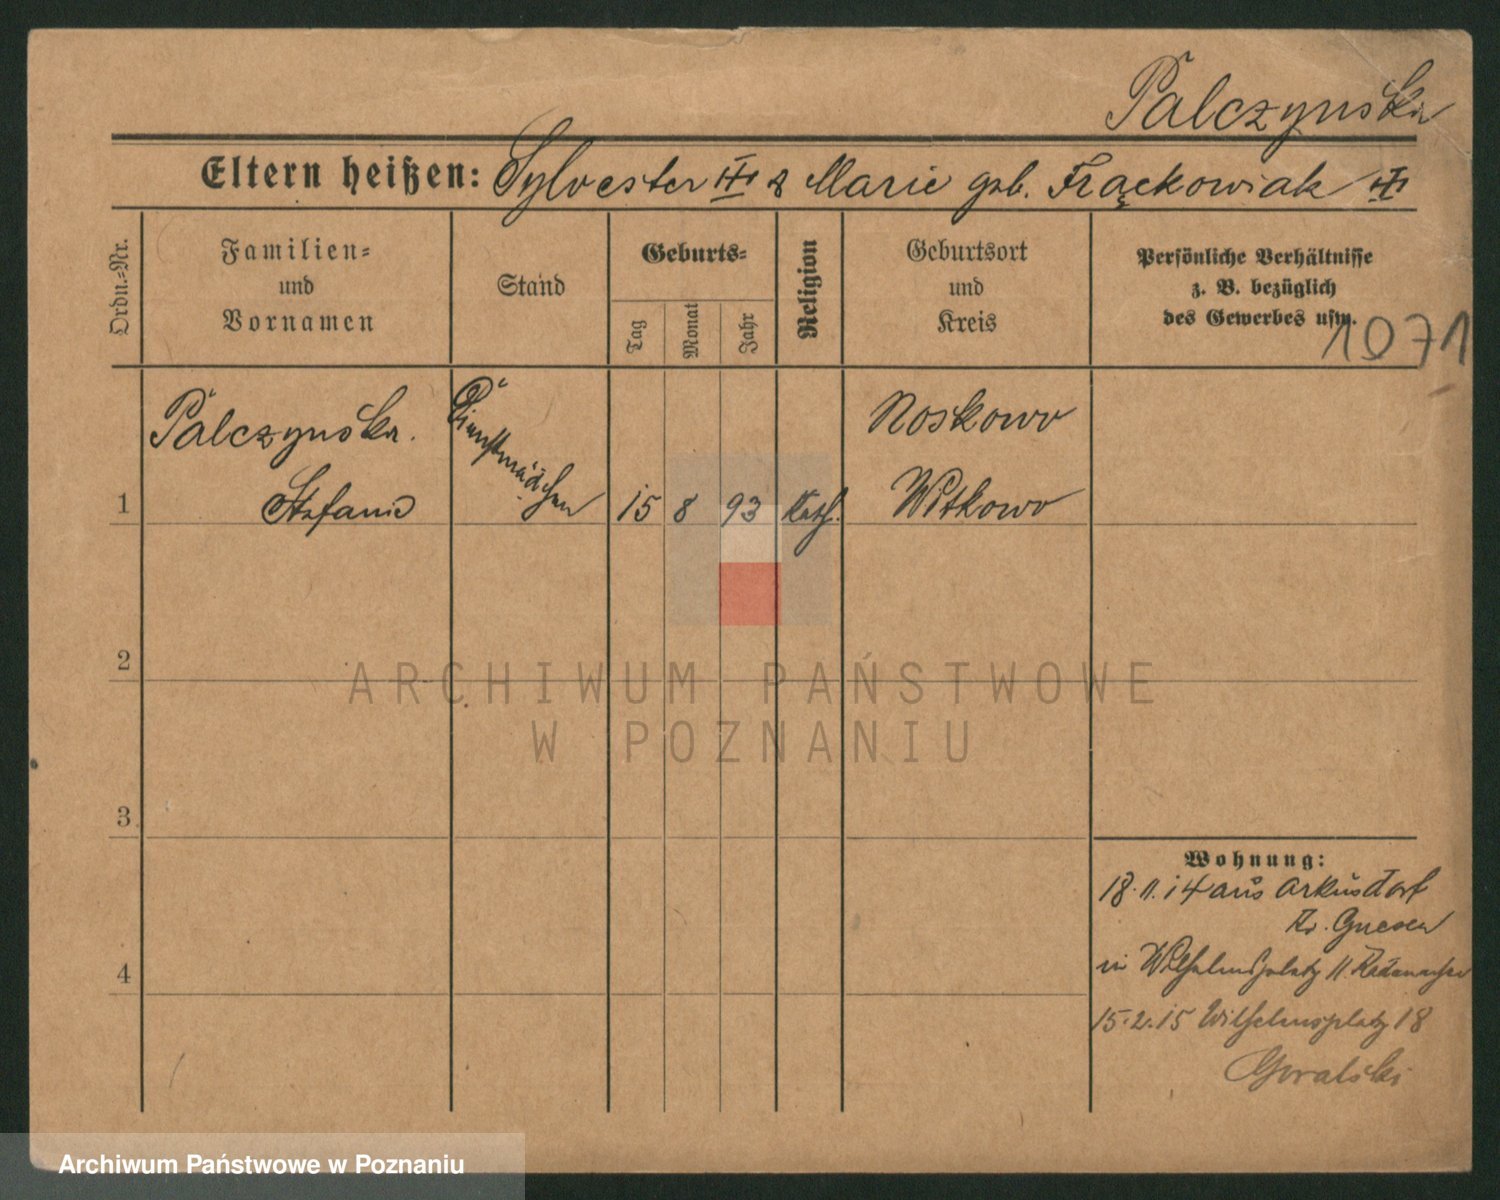 Palczynska
Eltern heißen: Sylvester & Marie geb. Frąckowiak
Ordn.-Nr.
Familien-
und
Vornamen
Stand
Geburts-
Tag
Monat
Jahr
Religion
Geburtsort
und
Kreis
Persönliche Verhältnisse
z. B. bezüglich
des Gewerbes usw.
1071
Palczynska.
Stefanie
Dienstmädchen
1
15 8 93 Kath.
Noskowo
Witkowo
2
ARCHIWUM PAŃSTWOWE
W POZNANIU
3
4
Wohnung:
18.11.14 aus Arkusdorf
Kr. Gnesen
in Wilhelmsplatz 11
15.2.15 Wilhelmsplatz 18
Goralski
Archiwum Państwowe w Poznaniu